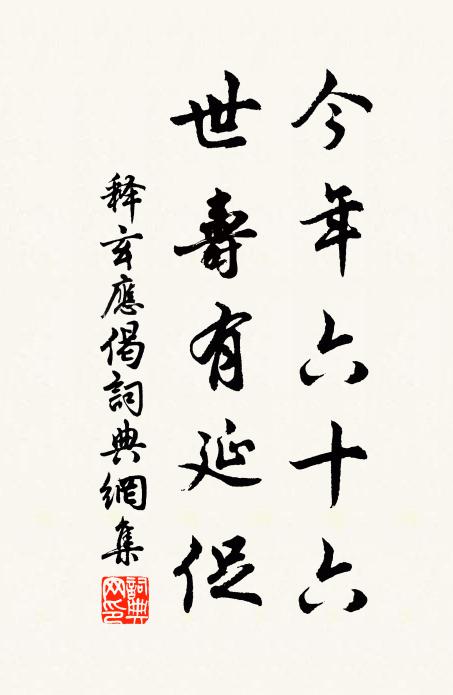 今年六十六
世壽有延促
释玄應偈詞典網集
詞典網印